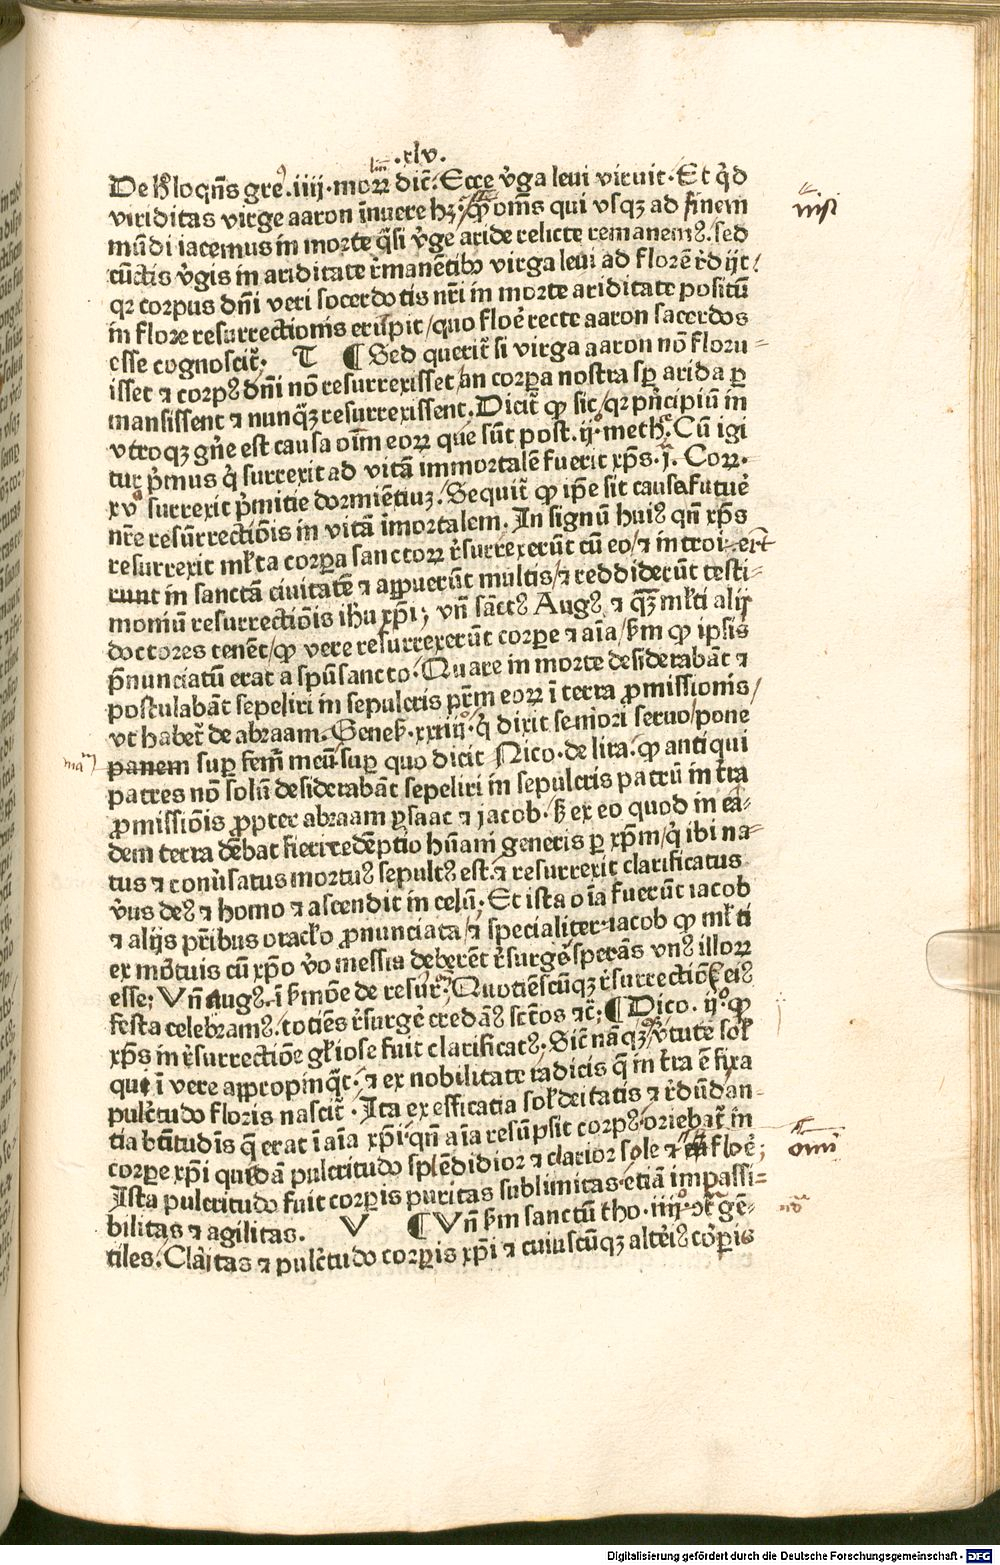 .xlv.
De hͦ loqñs greꝰ .iiij. moꝝ dic̄. Ecce v̓ga leui viruit. Et qͥd
viriditas virge aaron īnuere hꝫ. ꝙ om̄s qui vsqꝫ ad finem
mūdi iacemus in morte qͣsi v̓ge aride relicte remanemꝰ. sed
cūctis v̓gis in ariditate r̓manētibꝰ virga leui ad florē r̓dijt/
qꝛ corpus dn̄i veri socerdotis nr̄i in morte ariditate positū
in flore resurrectionis erupit/quo floē recte aaron sacerdos
esse cognoscit᷑. T ¶ Sed querit᷑ si virga aaron nō floru-
isset ⁊ corpꝰ dn̄i nō resurrexisset/an corꝑa nostra sꝑ arida ꝑ
mansissent ⁊ nunqͣꝫ resurrexissent. Dicit᷑ ꝙ sic/qꝛ pͥncipiū in
vtroqꝫ gn̄e est causa oīm eoꝝ que sūt post .ij. methͦ. Cū igi
tur pͥmus qͥ surrexit ad vitā immortalē fuerit xp̄s .j. Coꝝ.
xvͦ surrexit pͥmitie dormiētiuꝫ. Sequit᷑ ꝙ ip̄e sit causa futuē
nr̄e resūrrectiōis in vitā īmortalem. In signū huiꝰ qn̄ xp̄s
resurrexit ml̄ta corꝑa sanctoꝝ r̓surrexerūt cū eo/⁊ introi- ert
runt in sanctā ciuitatē ⁊ aꝑpuerūt multis/⁊ reddiderūt testi-
moniū resurrectiōis ih̄u xp̄i; vn̄ sāctꝰ Augꝰ ⁊ qͣꝫ ml̄ti alij
doctores tenēt/ꝙ vere resurrexerūt corꝑe ⁊ aīa/ẜm ꝙ ipsis
p̄nunciatū erat a spūsancto. Quare in morte desiderabāt ⁊
postulabāt sepeliri in sepulcris pr̄m eoꝝ ī terra ꝓmissionis/
vt habet᷑ de abraam. Geneẜ. xxiiijͦ. qͥ dixit seniori seruo/pone
panem suꝑ femͬ meū suꝑ quo dicit Nico. de lira. ꝙ antiqui
patres nō solū desiderabāt sepeliri in sepulcris patrū in tr̄ra
ꝓmissiōis ꝓpter abraam ysaac ⁊ jacob. ẜ ex eo quod in eā-
dem terra dēbat fieri redēptio hūani generis ꝑ xp̄m/qͥ ibi na-
tus ⁊ conuͥsatus mortuꝰ sepultꝰ est. ⁊ resurrexit clarificatus
v̓us deꝰ ⁊ homo ⁊ ascendit in celū. Et ista oīa fuerūt iacob
⁊ alijs pr̄ibus oracl̄o ꝓnunciata/⁊ specialiter iacob ꝙ ml̄ti
ex mōtuis cū xp̄o v̓o messia deberēt r̓surgē sperās vnꝰ illoꝝ
esse; Vn̄ Augꝰ. ī ẜmōe de resurͬ. Quotiēscūqꝫ r̓surrectiōē eiꝰ
festa celebramꝰ. totiēs r̓surgē credāꝰ sc̄tos ⁊c̄; ¶ Dico .ijͦ. ꝙ
xp̄s in r̓surrectiōe gl̄iose fuit clarificatꝰ. Sic̄ nāqꝫ v̓tute sol̄
qui ī vere aꝓpropinqͣt. ⁊ ex nobilitate radicis qͣ in tr̄ra ē fixa
pulc̄tudo floris nascit᷑. Ita ex efficatia sol̄ deitatis ⁊ r̓dūdan-
tia bt̄itudīs qͣ erat ī aīa xp̄i/qn̄ aīa resūpsit corpꝰ oriebat᷑ in
corꝑe xp̄i quedā pulcritudo splēdidior ⁊ clarior sole ⁊ floē;
Ista pulcritudo fuit corꝑis puritas sublimitas etiā impassi-
bilitas ⁊ agilitas. V ¶ Vn̄ ẜm sanctū tho. iiijͦ. ꝯtͣ gē-
tiles. Clāitas ⁊ pulc̄tudo corꝑis xp̄i ⁊ cuiuscūqꝫ alteiꝰ coꝑis
nisi
omī
Digitalisierung gefördert durch die Deutsche Forschungsgemeinschaft - DFG